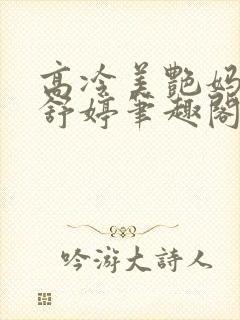 高冷美艷妈
舒婷筆趣閣
吟游大詩人